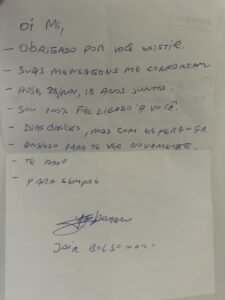 Oi Mi,
- OBRIGADO POR VOCÊ EXISTIR.
- SUAS MENSAGENS ME CONFORTAM
- HOJE 28/NOV, 18 ANOS JUNTOS.
- SOU 100% FIEL LIGADO A VOCÊ.
- DIAS DIFÍCEIS, MAS COM ESPERANÇA.
- ANSIOSO PARA TE VER NOVAMENTE.
- TE AMO
- PARA SEMPRE
JAIR BOLSONARO